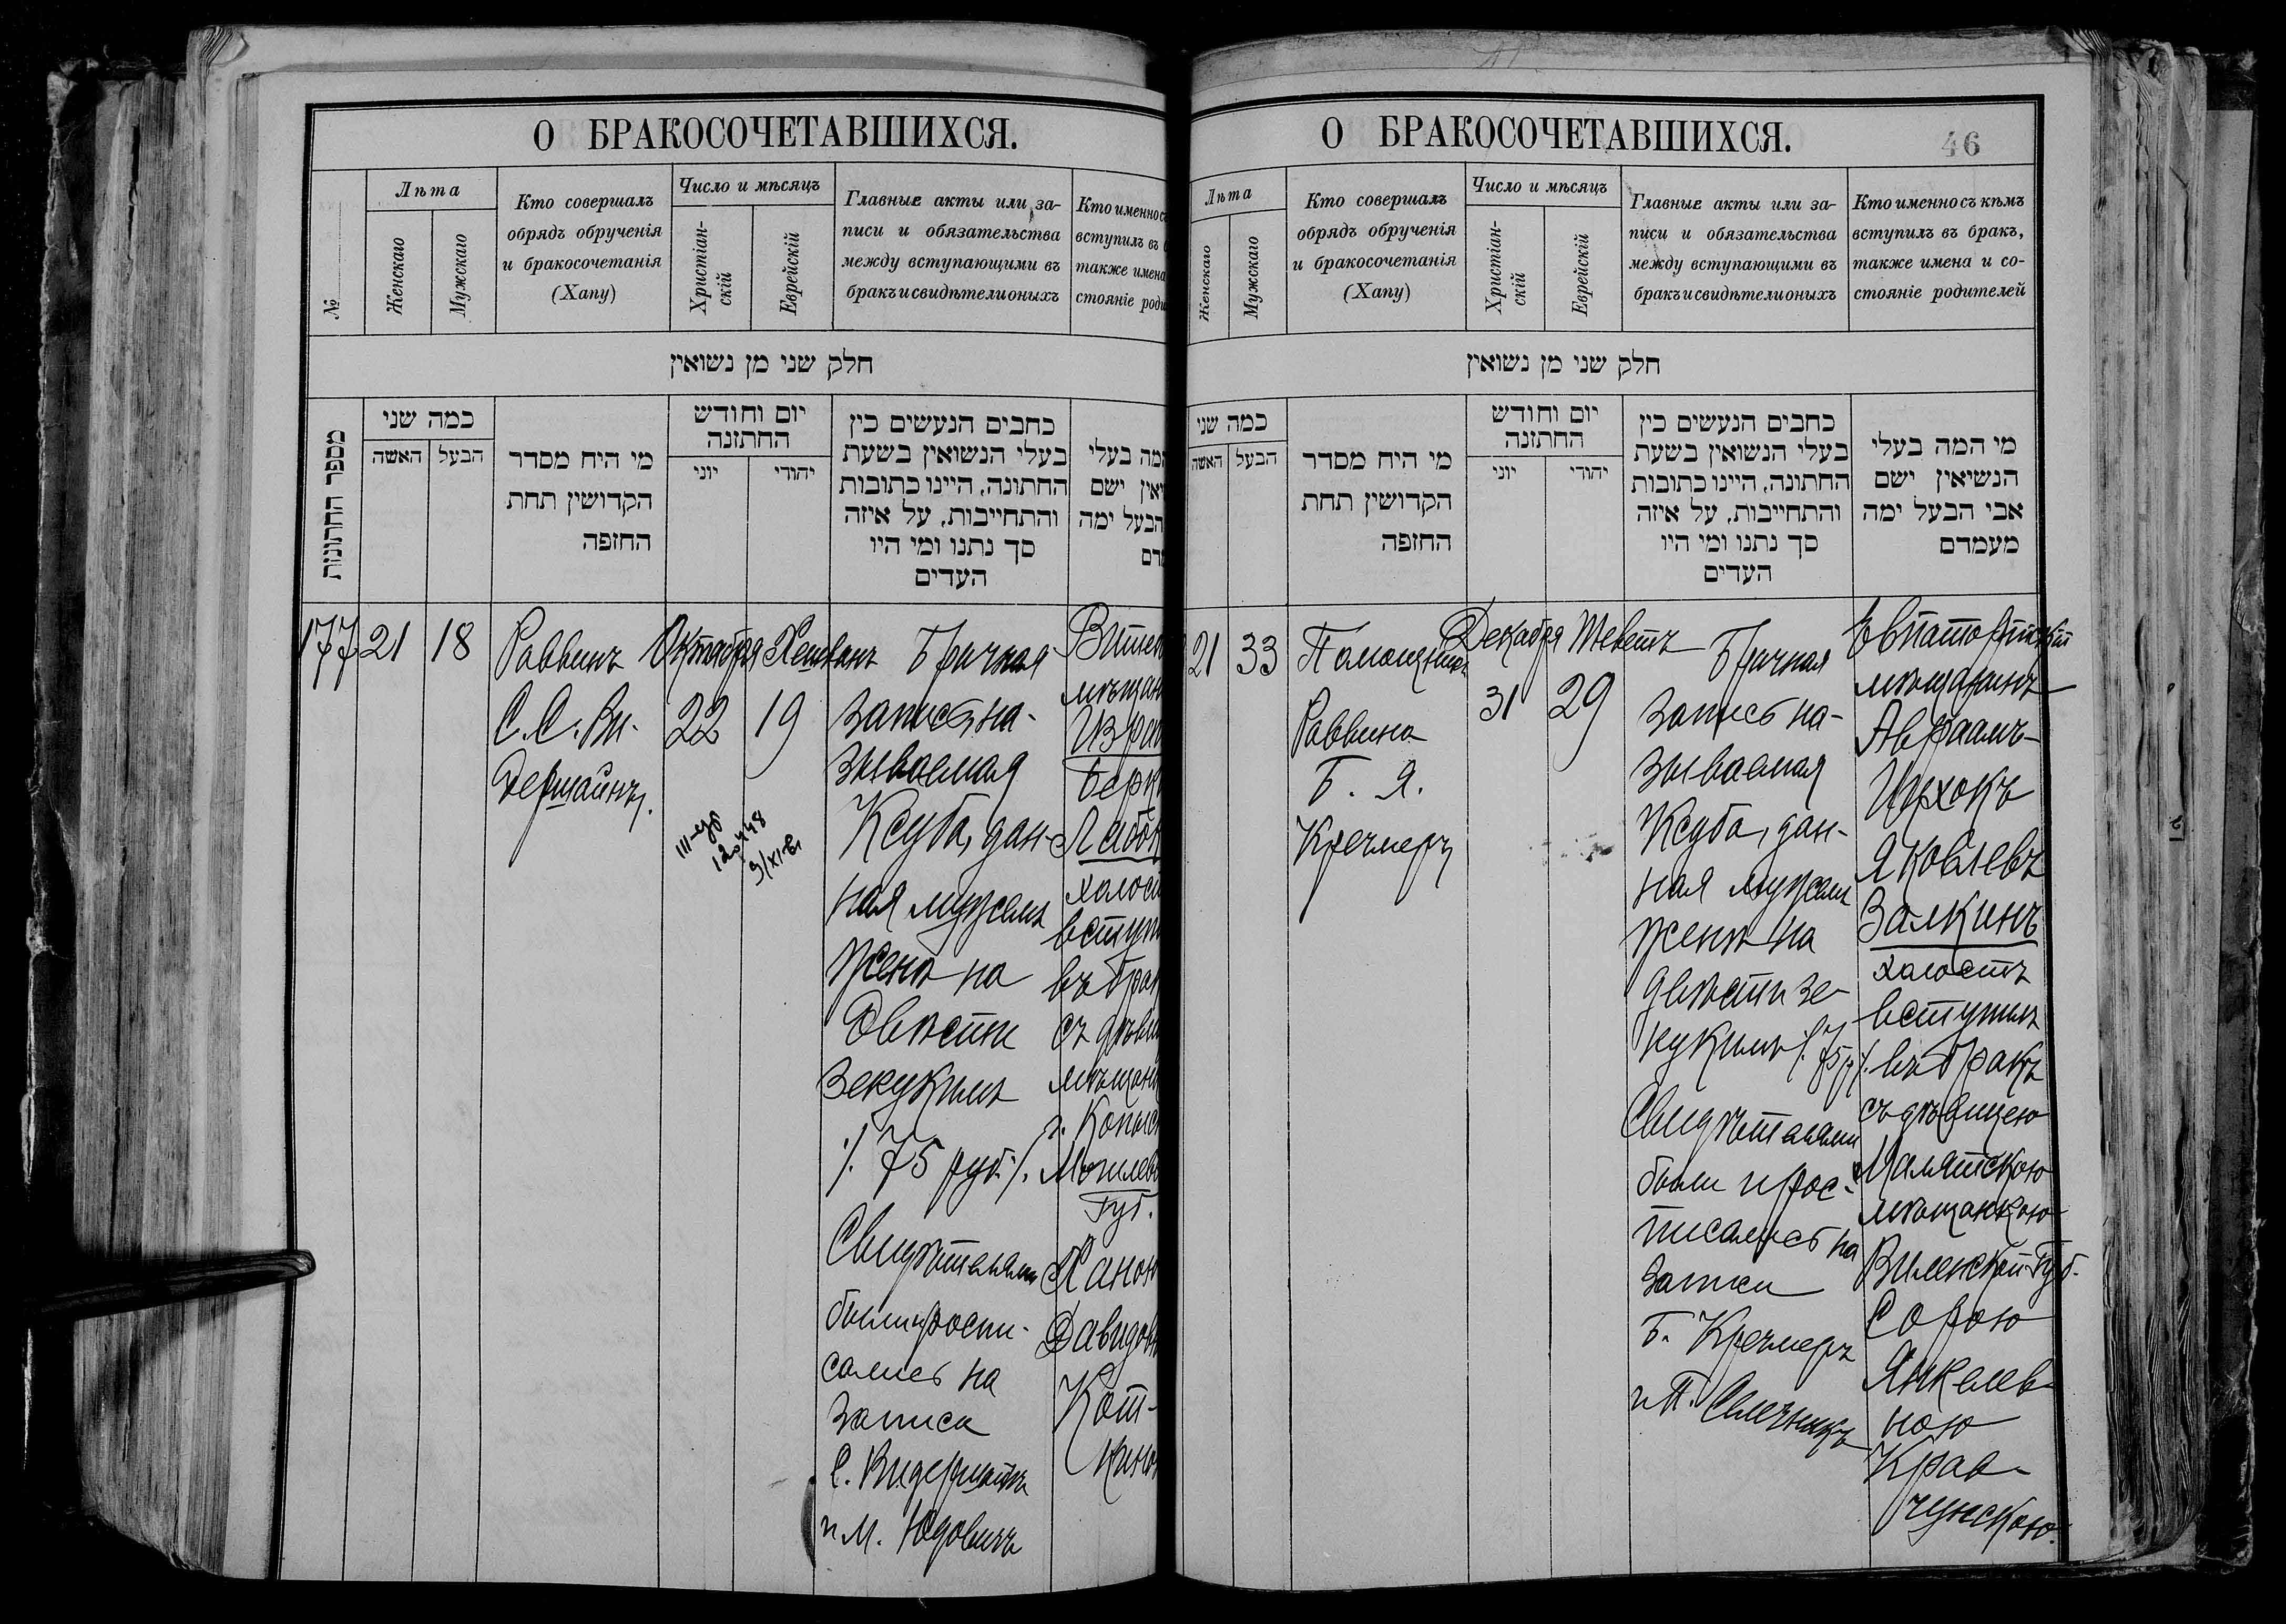 О БРАКОСОЧЕТАВШИХСЯ.
№
Лѣта
Женскаго
Мужскаго
Кто совершалъ
обрядъ обрученія
и бракосочетанія
(Хапу)
Число и мѣсяцъ
Христіан-
скій
Еврейскій
Главные акты или за-
писи и обязательства
между вступающими въ
бракъ и свидѣтели оныхъ
Кто именно съ
вступилъ въ
также имена
стояніе роди
חלק שני מן נשואין
מספר החתונות
כמה שני
האשה
הבעל
מי היח מסדר
הקדושין תחת
החזפה
יום וחודש
החתזנה
יוני
יהודי
כחבים הנעשים כין
בעלי הנשואין בשעת
החתונה, היינו כתובות
והתחייבות, על איזה
סך נתנו ומי היו
העדים
המה בעלי
ואין ישם
הבעל ימה
177
21
18
Раввинъ
С. С. Ви-
дершайнъ.
Октября
22
Хешванъ
19
III-езб
12448
9/XI-61
Брачная
запись на-
зываемая
Ксуба, дан-
ная мужемъ
женѣ на
Двѣсти
Зекукимъ
/. 75 руб. /.
Свидѣтелями
были и роспи-
сались на
записи
С. Видершайнъ
и М. Юдовичъ
Витеб
мѣщан
Изра
Берк
холост
вступи
въ брак
съ дѣви
мѣщан
г. Копыс
Могилевс
Губ.
Ханою
Давидов
Кот-
кино
О БРАКОСОЧЕТАВШИХСЯ.
46
Лѣта
Женскаго
Мужскаго
Кто совершалъ
обрядъ обрученія
и бракосочетанія
(Хапу)
Число и мѣсяцъ
Христіан-
скій
Еврейскій
Главные акты или за-
писи и обязательства
между вступающими въ
бракъ и свидѣтели оныхъ
Кто именно съ кѣмъ
вступилъ въ бракъ,
также имена и со-
стояніе родителей
חלק שני מן נשואין
כמה שני
האשה
הבעל
מי היח מסדר
הקדושין תחת
החזפה
יום וחודש
החתזנה
יוני
יהודי
כחבים הנעשים כין
בעלי הנשואין בשעת
החתונה, היינו כתובות
והתחייבות, על איזה
סך נתנו ומי היו
העדים
מי המה בעלי
הנשיאין ישם
אבי הבעל ימה
מעמדם
21
33
Помощникъ
Раввина
Б. Я.
Кречмеръ
Декабря
31
Теветъ
29
Брачная
запись на-
зываемая
Ксуба, дан-
ная мужемъ
женѣ на
двѣсти зе-
кукимъ /. 75 р /.
Свидѣтелями
были и рос-
писались на
записи
Б. Кречмеръ
Евпаторійскій
мѣщанинъ
Авраамъ-
Ицхокъ
Яковлевъ
Залкинъ
холостъ
вступилъ
въ бракъ
съ дѣвицею
мѣщанкою
Виленской Губ.
Сорою
Янкелев-
ною
Крав-
чунскою.